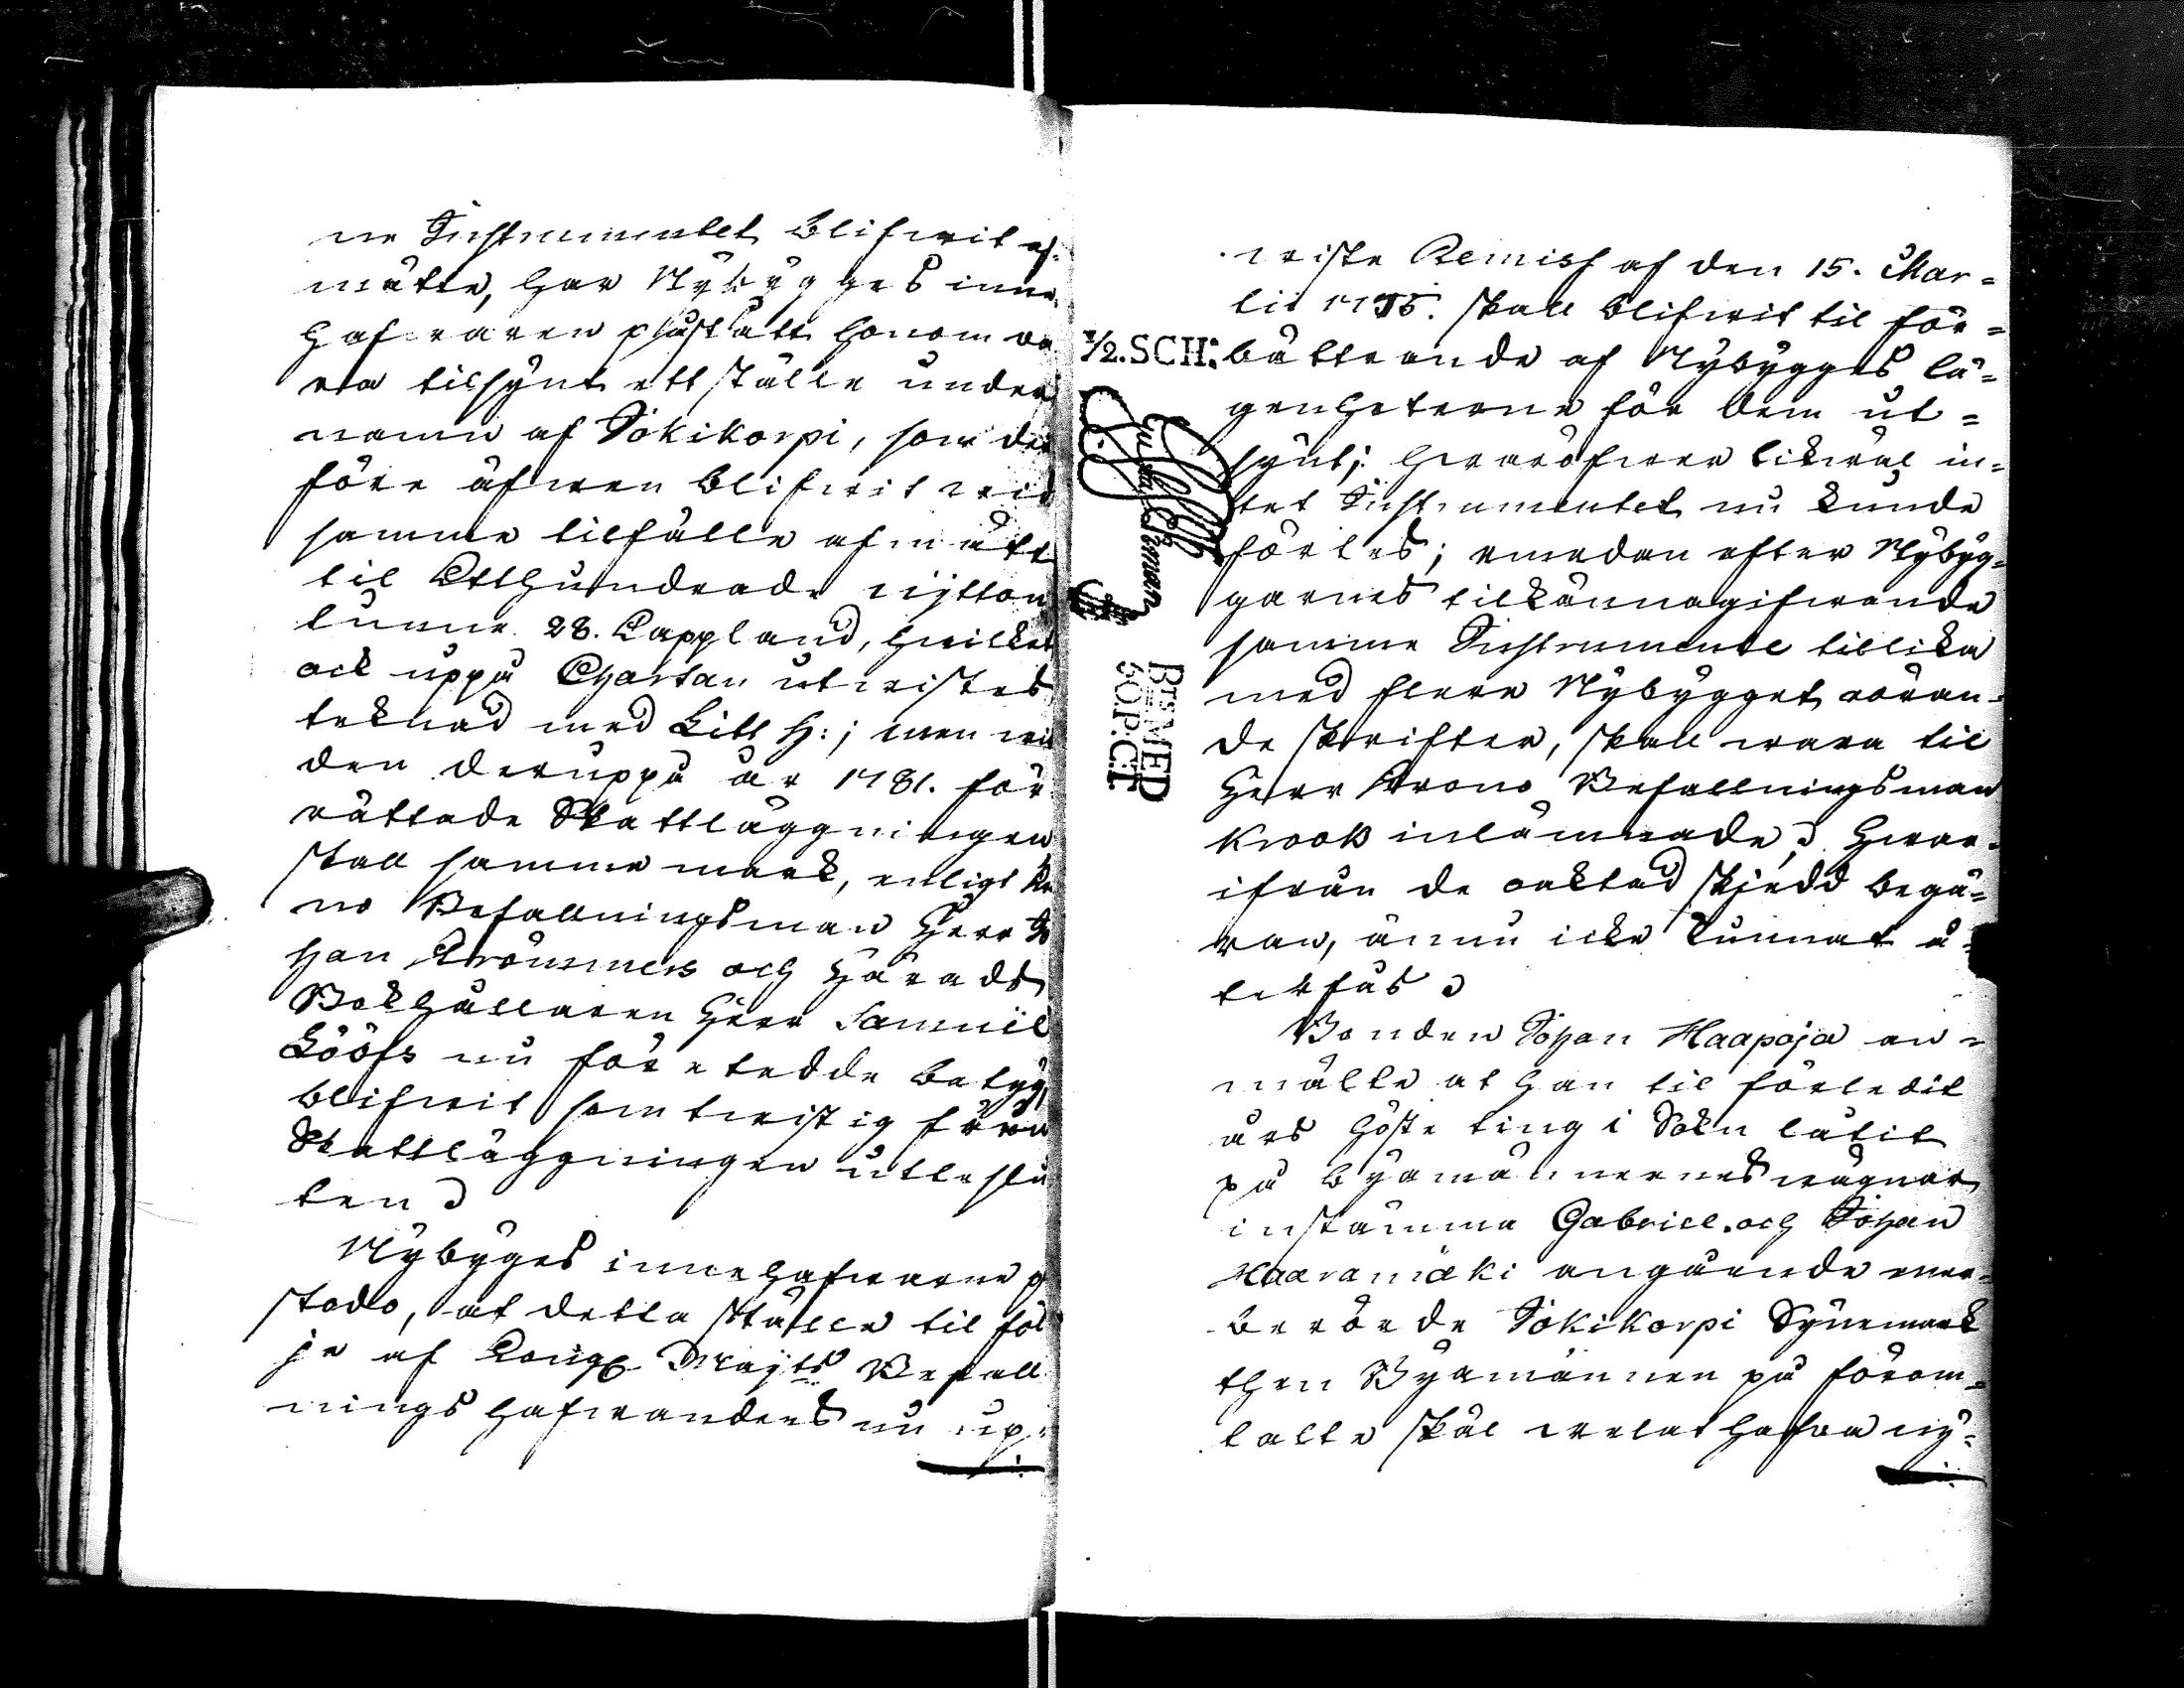 ne Instrumentet blifwit af-
mätte, har Nybygges inne-
hafwaren påstått honom wa
ra tilsynt ett ställe under
namn af Jokikorpi, som der
före äfwen blifwit wid
samma tilfälle afmätt
til Etthundrade nijtton
tunne 28. Cappland, hwilket
ock uppå Chartan utwistes
teknad med Litt H:; men wid
den deruppå år 1781. för
rättade Skattläggningen
skall samma mark, enligt Kro
no Befallningsman Herr Jo
han Krommers och Härads
Bokhållaren Herr Samuel
Lööfs nu företedde betyg,
blifwit som twistig från
Skattläggningen uteslu
ten
Nybyges innehafwarne på
stodo, at detta ställe til föl
je af Kongl Majts Befall
nings hafwandes nu up-
wiste Remiss af den 15. Mar=
tii 1775. skall blifwit til för=
bättrande af Nybygges lä=
genheterne för dem ut=
synt; hwaröfwer likwäl in=
tet Instrumentet nu kunde
förtes; emedan efter Nybyg=
garnes tilkännagifwande
samma Instrumente tillika
med flere Nybygget röran=
de skrifter, skall wara til
Herr Krono Befallningsman
Krook inlämnade, hwar-
ifrån de oaktad skjedd begä=
ran, ännu icke kunnat å=
terfås
Bonden Johan Haapoja an=
mälte at han til förledit
års höste ting i Sokn låtit
på byamännernes wägnar
instämma Gabriel och Johan
Haaramäki angående mer-
berörde Jokikorpi Synemark
then Byamännen på förom=
talte skäl welat hafwa ny=
1/2.SCH:
BTS MED
S.O.P.C.T.